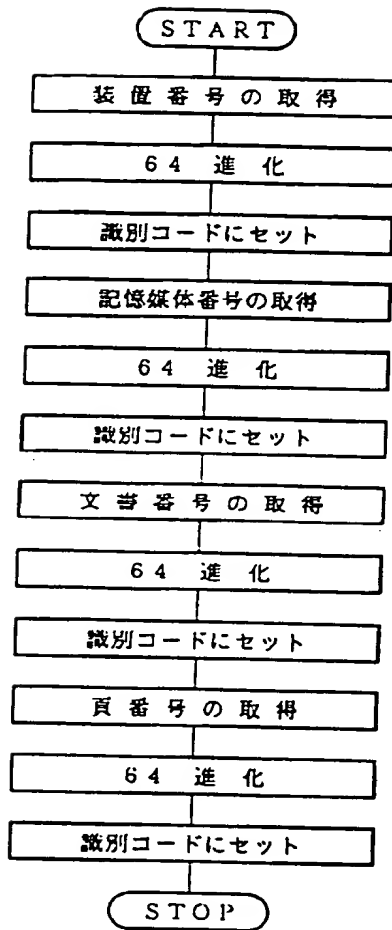 START
装置番号の取得
64進化
識別コードにセット
記憶媒体番号の取得
64進化
識別コードにセット
文書番号の取得
64進化
識別コードにセット
頁番号の取得
64進化
識別コードにセット
STOP